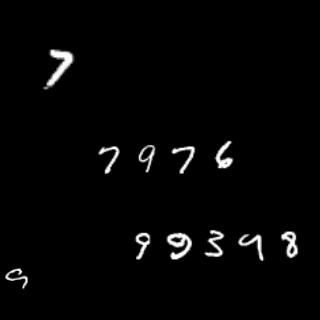 7
7976
99398
9